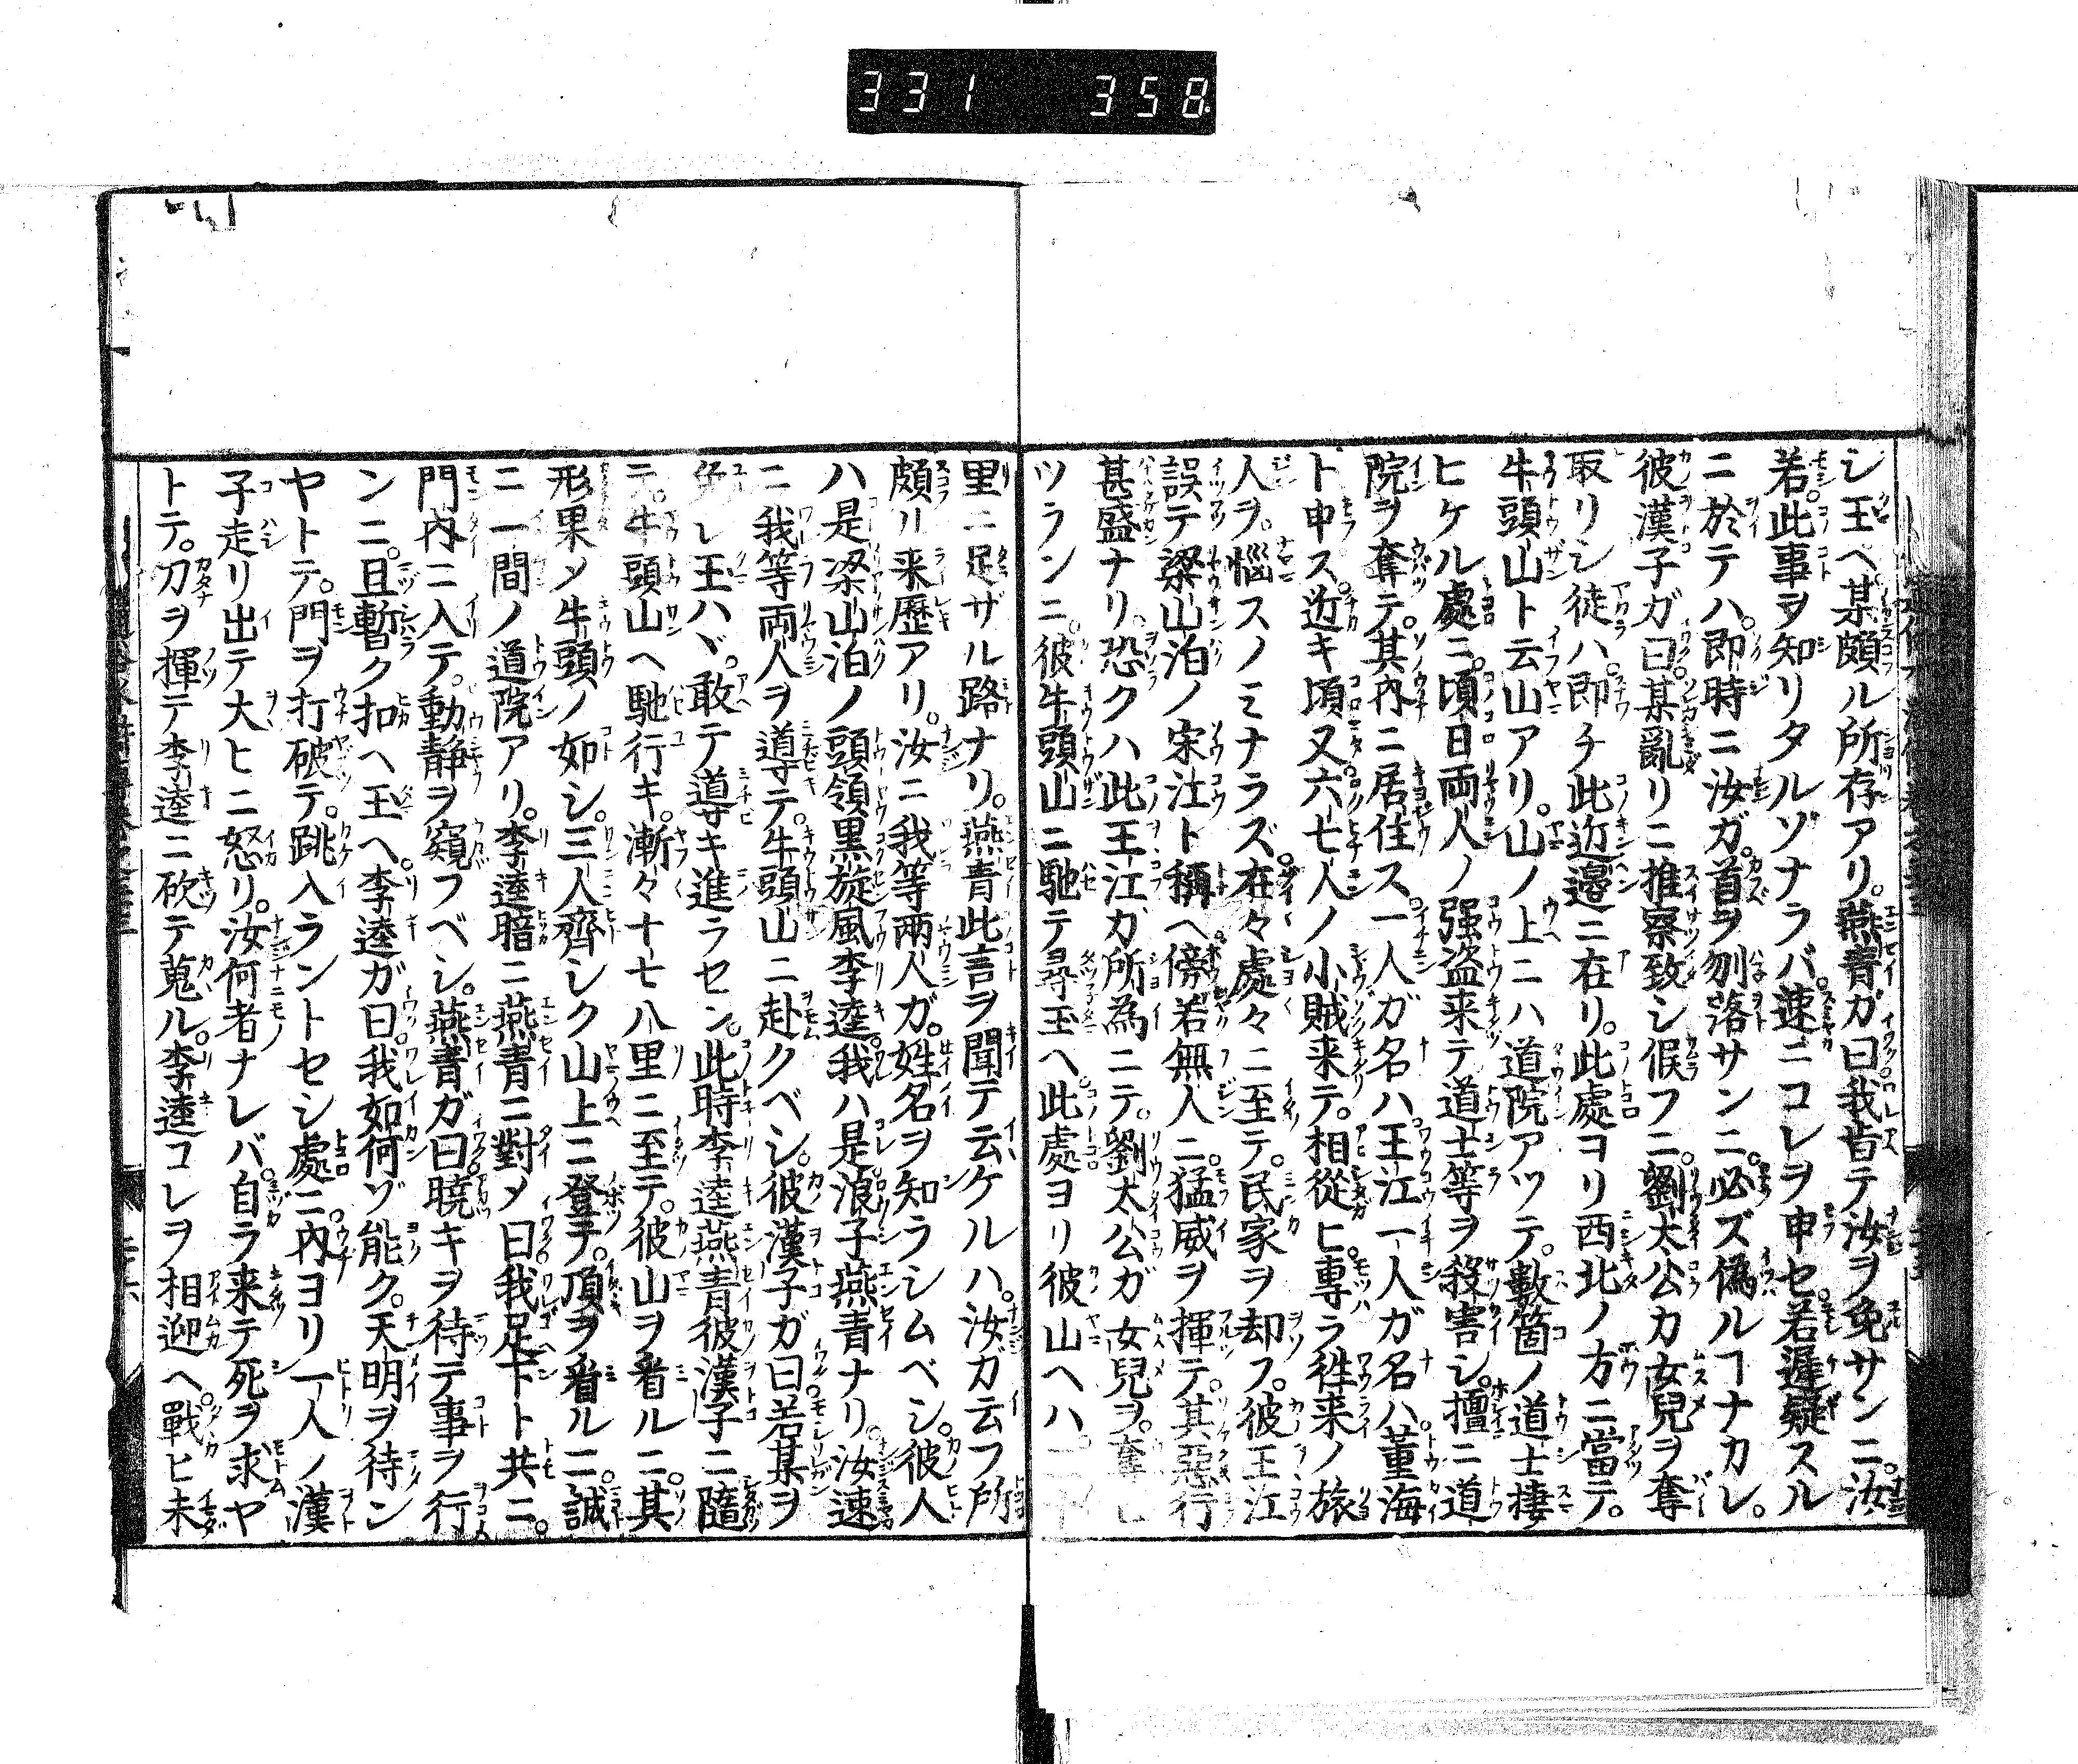 331 358
シ玉ヘ某頗ル所存アリ。燕青ガ曰我肯テ汝ヲ免サンニ。汝
若此事ヲ知リタルゾナラバ。速ニコレヲ申セ。若遅疑スル
ニ於テハ。即時ニ汝ガ。首ヲ刎落サンニ。必ズ偽ルヿナカレ。
彼漢子ガ曰。某亂リニ推察致シ候フニ。劉太公カ女兒ヲ奪
取リシ徒ハ。即チ此近邉ニ在リ。此處ヨリ西北ノ方ニ當テ。
牛頭山ト云山アリ。山ノ上ニハ道院アツテ。數箇ノ道士捿
ヒケル處ニ。頃日両人ノ强盗来テ道士等ヲ殺害シ。擅ニ道
院ヲ奪テ。其内ニ居住ス。一人ガ名ハ王江一人ガ名ハ董海
ト申ス。近キ頃又六七人ノ小賊来テ。相從ヒ。專ラ徃来ノ旅
人ヲ。惱スノミナラズ。在々處々ニ至テ。民家ヲ却フ。彼王江
誤テ梁山泊ノ宋江ト稱ヘ。傍若無人ニ猛威ヲ揮テ。其惡行
甚盛ナリ。恐クハ此王江ガ所為ニテ。劉太公ガ女兒ヲ。奪ヒ
ツランニ。彼牛頭山ニ馳テ尋玉ヘ。此處ヨリ彼山ヘハ。
里ニ足ザル路ナリ。燕青此言ヲ聞テ云ケルハ。汝ガ云フ所
頗ル来歴アリ。汝ニ我等兩人ガ。姓名ヲ知ラシムベシ。彼人
ハ是梁山泊ノ頭領黒旋風李逵。我ハ是浪子燕青ナリ。汝速
ニ我等両人ヲ導テ。牛頭山ニ赴クベシ。彼漢子ガ曰若某ヲ
免レ玉ハヾ。敢テ導キ進ラセン。此時李逵燕青彼漢子ニ隨
テ。牛頭山ヘ馳行キ。漸々十七八里ニ至テ。彼山ヲ看ルニ。其
形果メ牛頭ノ如シ。三人齊シク山上ニ登テ。頂ヲ看ルニ。誠
ニ一間ノ道院アリ。李逵暗ニ燕青ニ對メ曰我足下ト共ニ。
門内ニ入テ。動静ヲ窺フベシ。燕青ガ曰曉キヲ待テ事ヲ行
ンニ。且暫ク扣ヘ玉ヘ。李逵ガ曰我如何ゾ能ク。天明ヲ待ン
ヤトテ。門ヲ打破テ。跳入ラントセシ處ニ。内ヨリ一人ノ漢
子走リ出テ大ヒニ怒リ。汝何者ナレバ。自ラ来テ死ヲ求ヤ
トテ。刀ヲ揮テ李逵ニ砍テ蒐ル。李逵コレヲ相迎ヘ。戰ヒ未